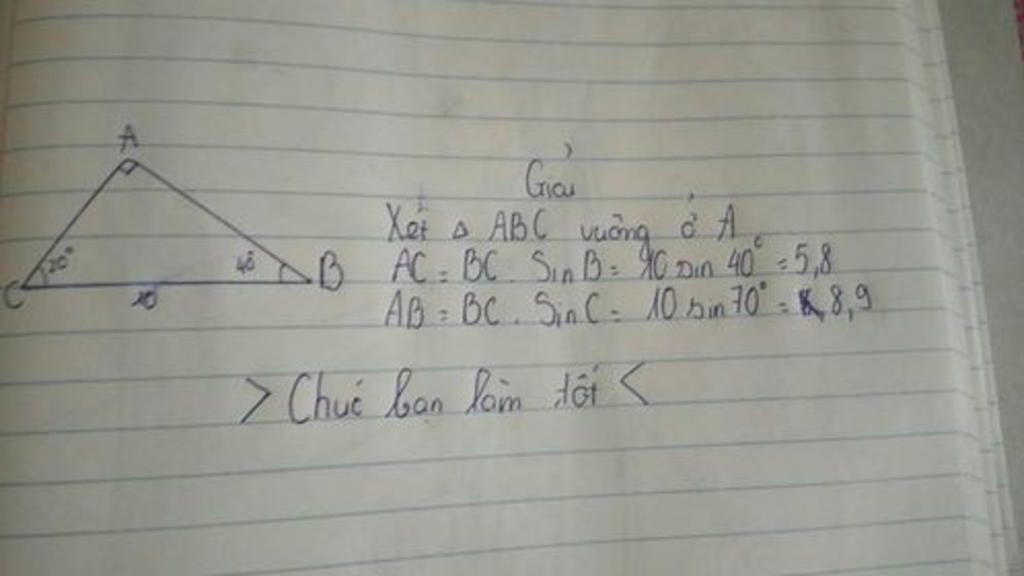 A
Giải
Xét △ ABC vuông ở A
70° 40 B AC = BC . Sin B = 10 sin 40° = 5,8
C 10 AB = BC . Sin C = 10 sin 70° = 8,9
> Chúc bạn làm tốt <